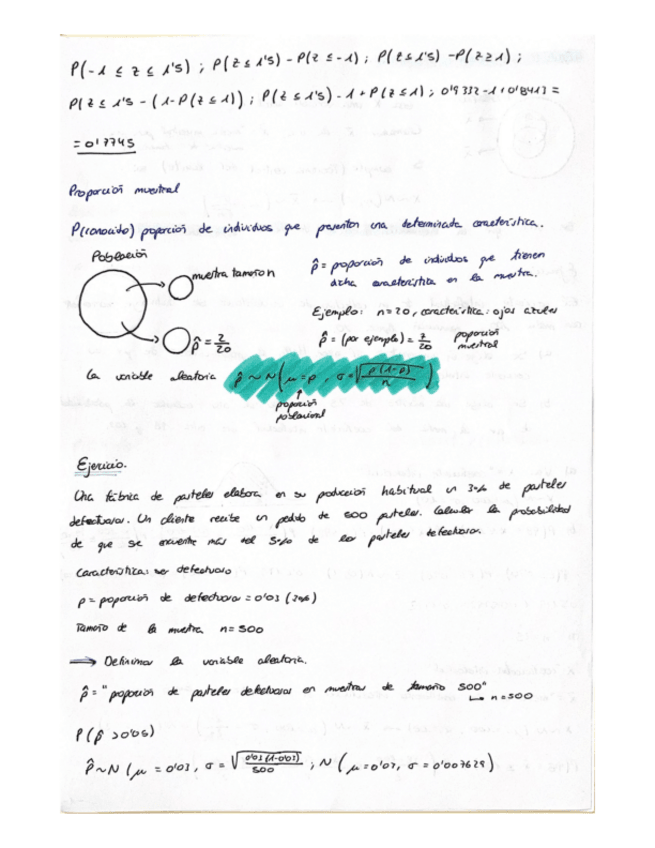 P(-1 ≤ z ≤ 1'5) ; P(z ≤ 1'5) - P(z ≤ -1) ; P(z ≤ 1'5) - P(z ≥ 1) ;
P(z ≤ 1'5 - (1 - P(z ≤ 1)) ; P(z ≤ 1'5) - 1 + P(z ≤ 1) ; 0'9332 - 1 + 0'8413 =
= 0'7745
Proporción muestral
P(conocido) proporción de individuos que presentan una determinada característica.
Población
muestra tamaño n
p̂ = 2/20
p̂ = proporción de individuos que tienen
dicha característica en la muestra.
Ejemplo: n = 20, característica: ojos azules
p̂ = (por ejemplo) = 7/20 proporción
muestral
La variable aleatoria p̂ ~ N(μ = p, σ = √(p(1-p)/n))
↑
proporción
poblacional
Ejercicio.
Una fábrica de pasteles elabora en su producción habitual un 3% de pasteles
defectuosos. Un cliente recibe un pedido de 500 pasteles. Calcular la probabilidad
de que se encuentre más del 5% de los pasteles defectuosos
Característica: ser defectuoso
p = proporción de defectuosos = 0'03 (3%)
Tamaño de la muestra n = 500
→ Definimos la variable aleatoria.
p̂ = "proporción de pasteles defectuosos en muestras de tamaño 500"
↳ n = 500
P(p̂ > 0'05)
p̂ ~ N(μ = 0'03, σ = √(0'03(1-0'03)/500) ; N(μ = 0'03, σ = 0'007629)